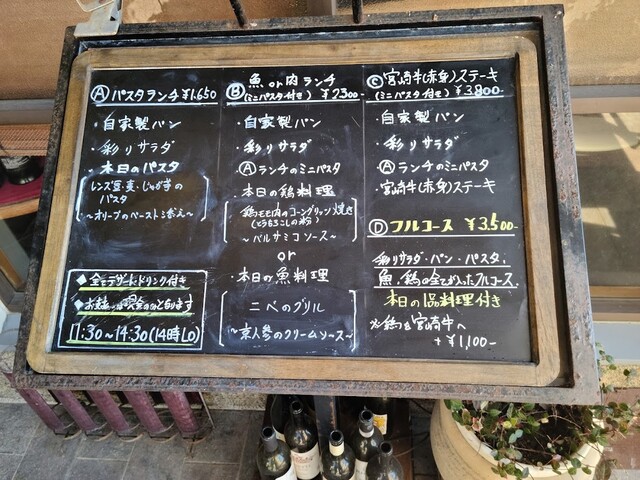 Ⓐ パスタランチ ¥1.650
・自家製パン
・彩りサラダ
・本日のパスタ
レンズ豆・麦・じゃが芋の
パスタ
〜オリーブのペースト添え〜
◆全てデザート・ドリンク付き
◆お支払いは現金のみとなります
11:30〜14:30(14時LO)
Ⓑ 魚 or 肉 ランチ
(ミニパスタ付き) ¥2300-
・自家製パン
・彩りサラダ
・Ⓐランチのミニパスタ
・本日の鶏料理
鶏モモ肉のコーングリッツ焼き
(とうもろこしの粉)
〜バルサミコソース〜
or
・本日の魚料理
ニベのグリル
〜京人参のクリームソース〜
Ⓒ 宮崎牛(赤身)ステーキ
(ミニパスタ付き) ¥3.800-
・自家製パン
・彩りサラダ
・Ⓐランチのミニパスタ
・宮崎牛(赤身)ステーキ
Ⓓ フルコース ¥3.500-
彩りサラダ・パン・パスタ・
魚・鶏の全てが入ったフルコース
本日の1品料理付き
※鶏を宮崎牛へ
+¥1,100-